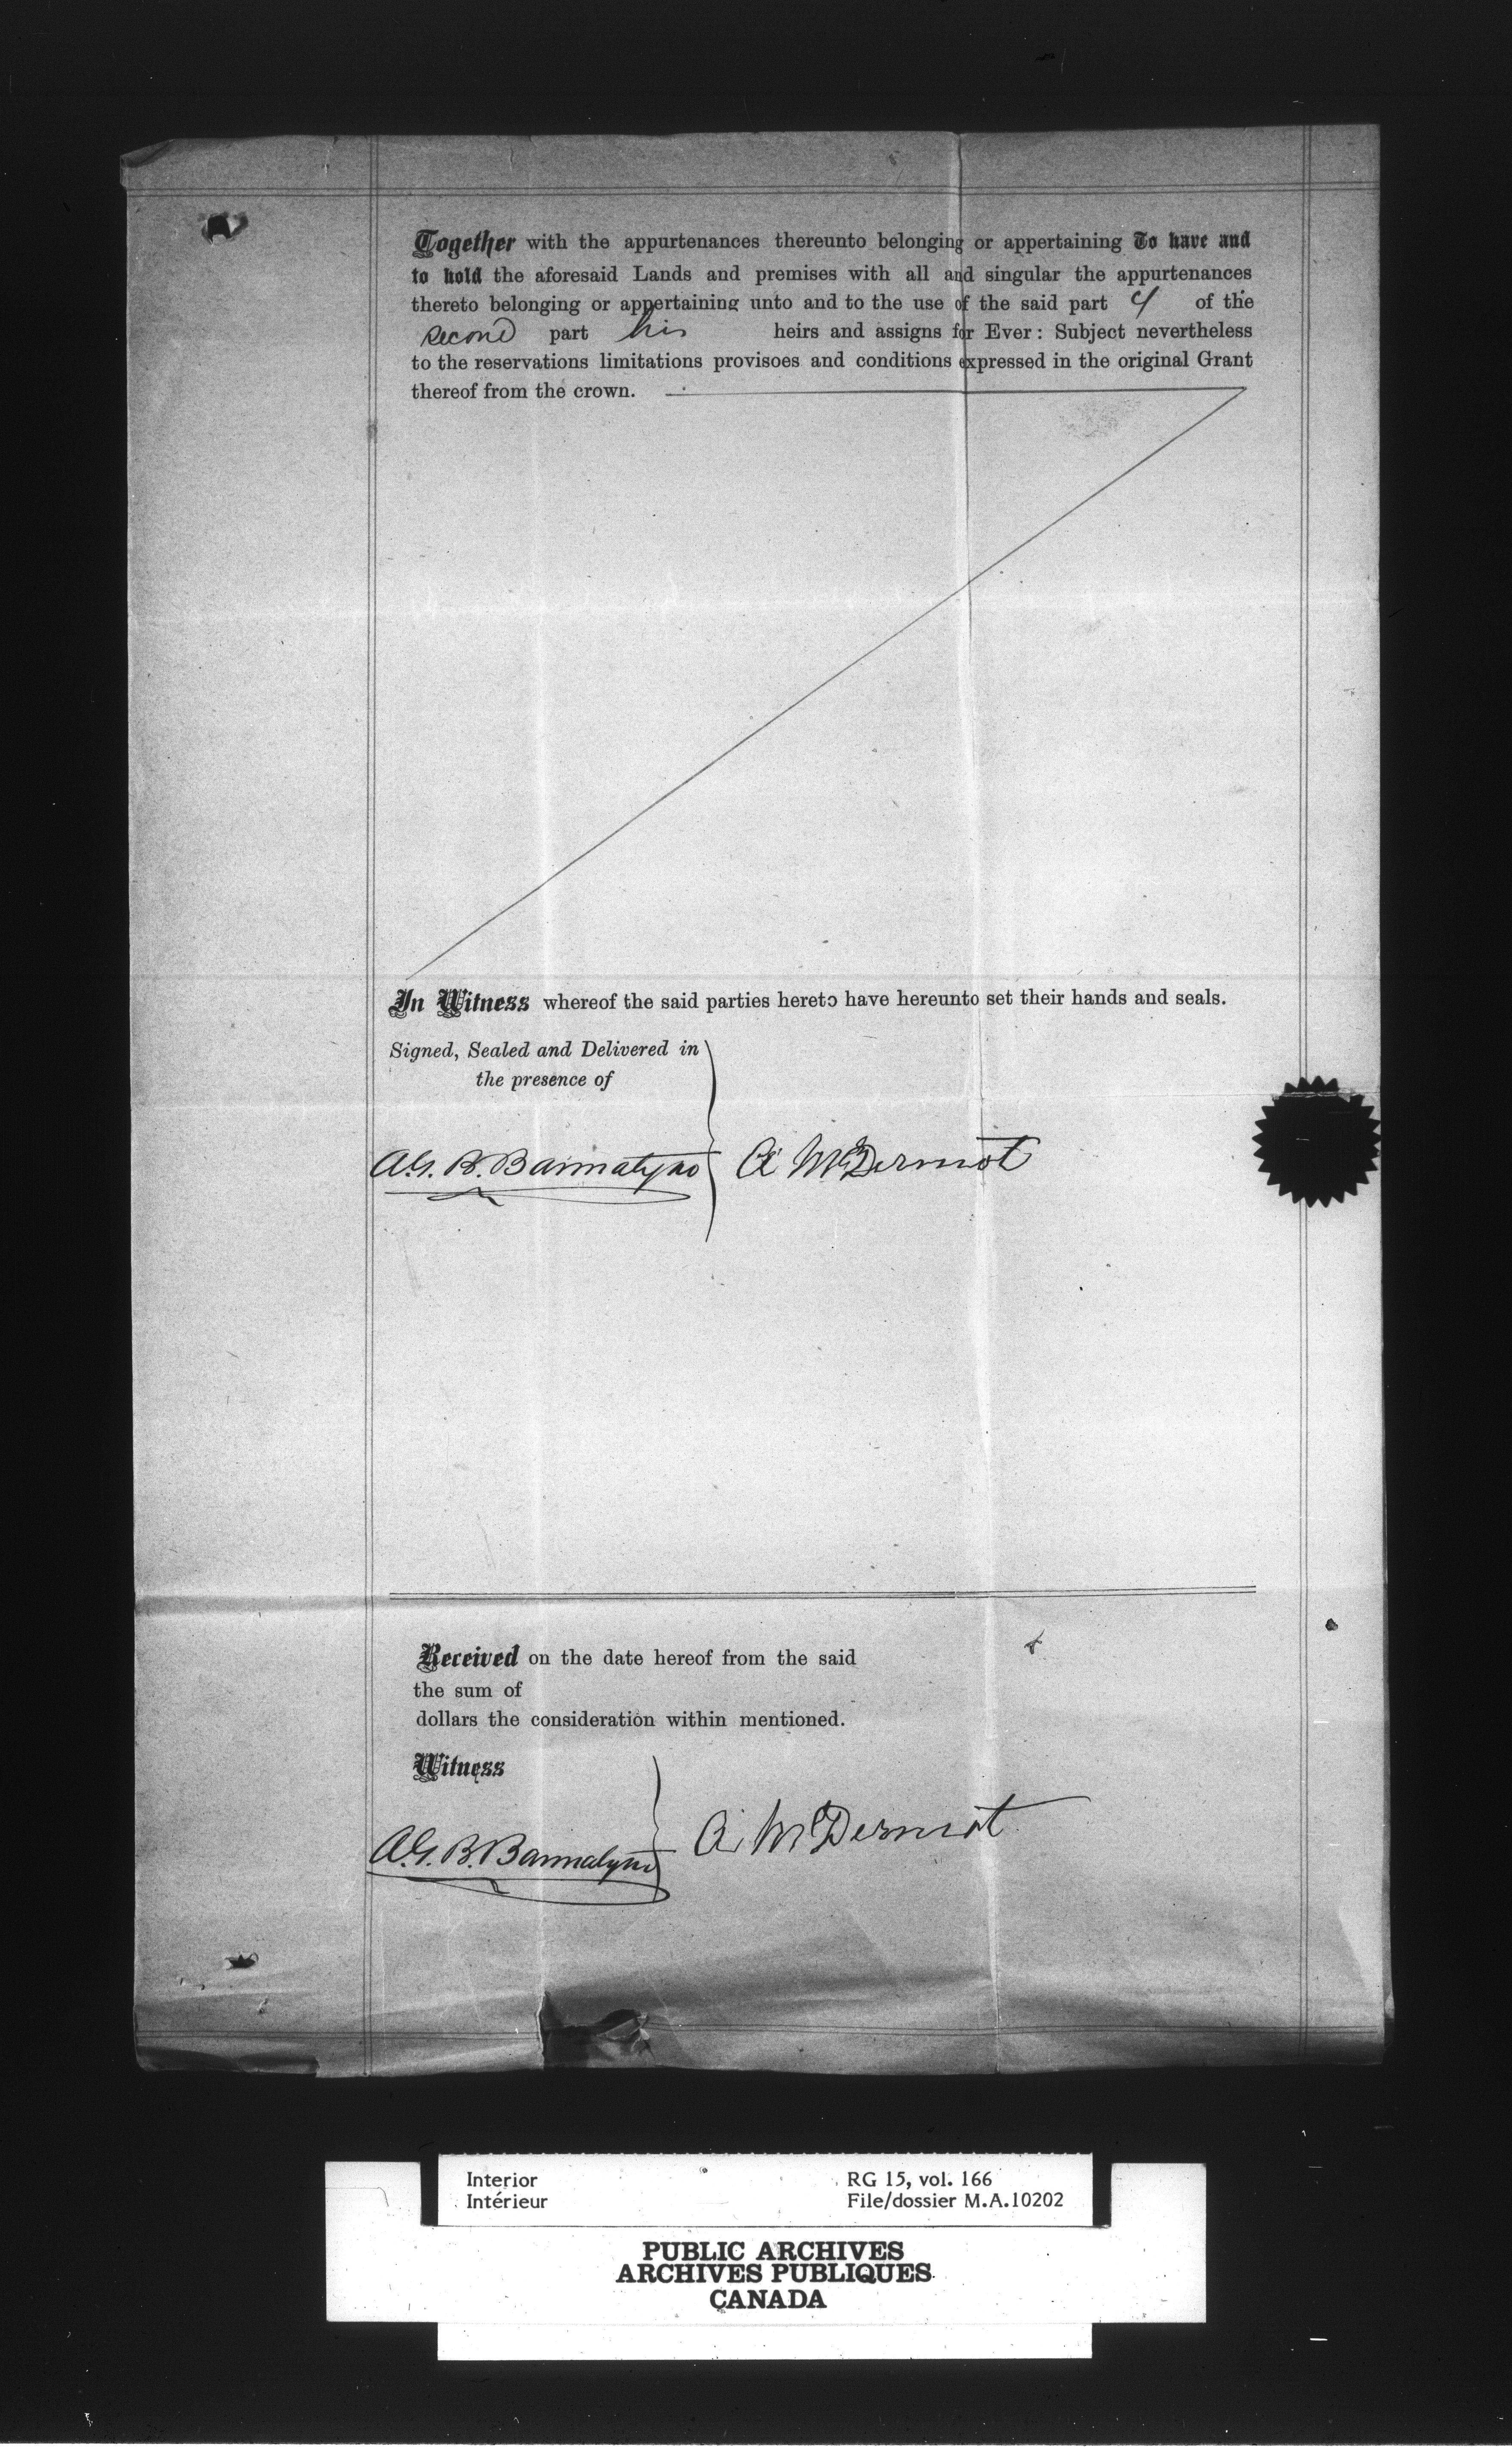 Together with the appurtenances thereunto belonging or appertaining To have and
to hold the aforesaid Lands and premises with all and singular the appurtenances
thereto belonging or appertaining unto and to the use of the said part y of the
second part his heirs and assigns for Ever: Subject nevertheless
to the reservations limitations provisoes and conditions expressed in the original Grant
thereof from the crown.
In Witness whereof the said parties hereto have hereunto set their hands and seals.
Signed, Sealed and Delivered in
the presence of
A.G.B. Bannatyne A McDermot
Received on the date hereof from the said
the sum of
dollars the consideration within mentioned.
Witness
A.G.B. Bannatyne A McDermot
Interior RG 15, vol. 166
Intérieur File/dossier M.A.10202
PUBLIC ARCHIVES
ARCHIVES PUBLIQUES
CANADA